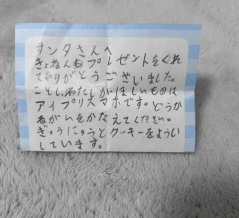 サンタさんへ
きょねんもプレゼントをくれ
てありがとうございました。
ことしわたしがほしいものは
アイプリスマホです。どうか
ねがいをかなえてください。
ぎゅうにゅうとクッキーをようい
しています。